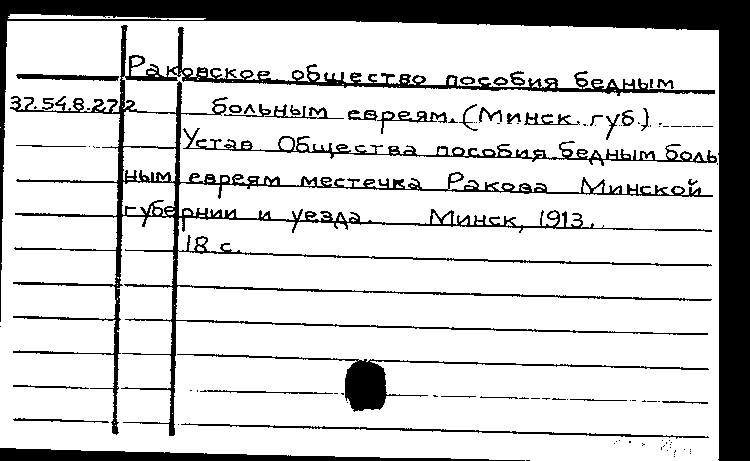 Раковское общество пособия бедным
37.54.8.272 больным евреям. (Минск. губ.).
Устав Общества пособия бедным боль
ным евреям местечка Ракова Минской
губернии и уезда. Минск, 1913.
18 с.